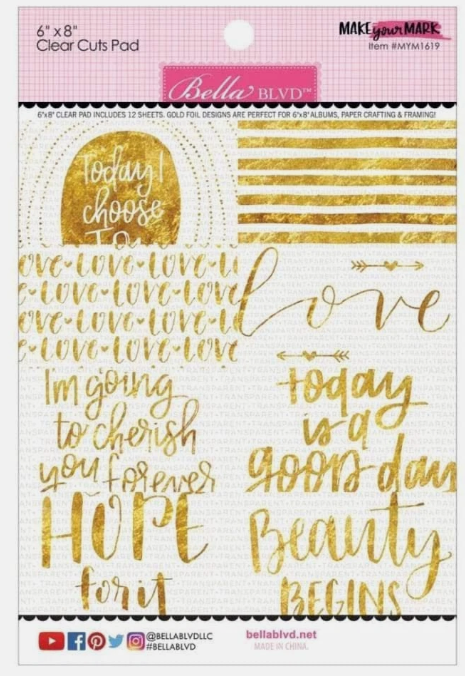 6" x 8"
Clear Cuts Pad
MAKE your MARK
Item #MYM1619
Bella BLVD™
6"x8" CLEAR PAD INCLUDES 12 SHEETS. GOLD FOIL DESIGNS ARE PERFECT FOR 6"x8" ALBUMS, PAPER CRAFTING & FRAMING!
Today I
choose
Joy
OVE LOVE LOVE LOVE LO
LOVE LOVE LOVE LOVE
OVE LOVE LOVE LOVE
LOVE LOVE LOVE LOVE
love
I'm going
to cherish
you forever
today
is a
good day
HOPE
for it
Beauty
BEGINS
TRANSPARENT
@BELLABLVDLLC
#BELLABLVD
bellablvd.net
MADE IN CHINA.